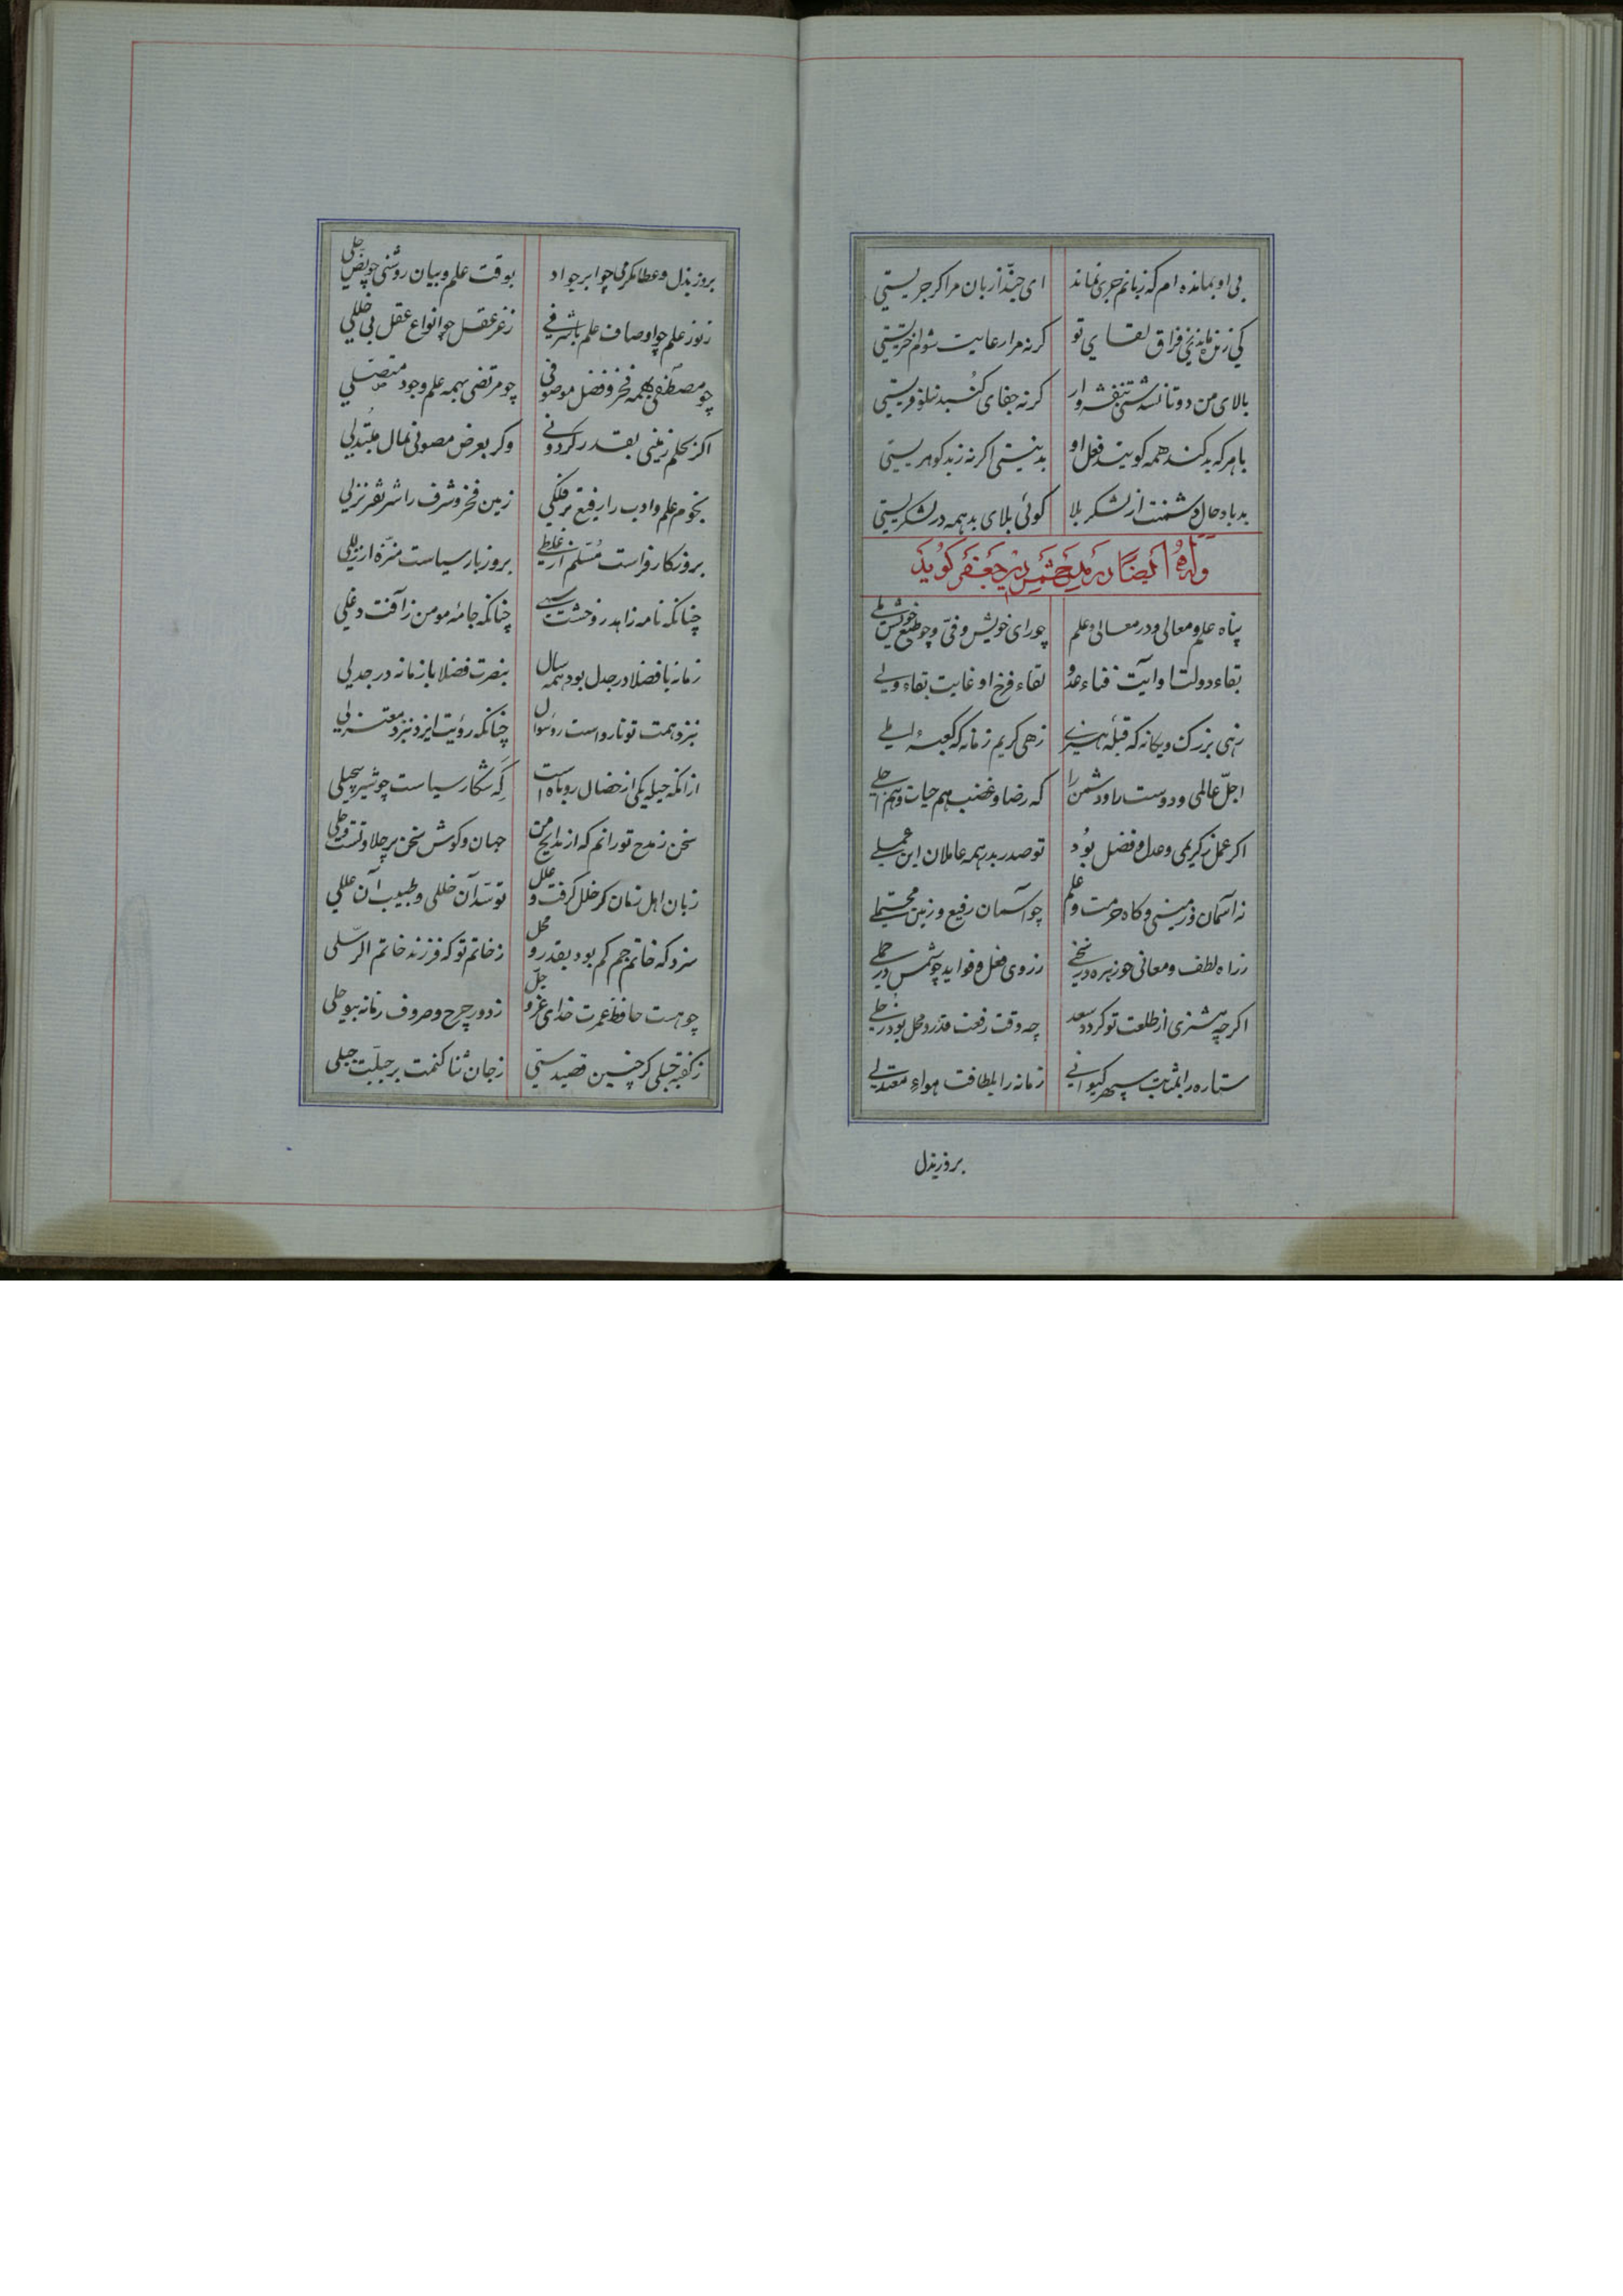 بی او بمانده ام که زبانم جری نماند ای حبّذا زبان مرا گر جریستی
کی زنده ماندی ز فراق لقای تو گرنه مرا رعایت شواخریستی
بالای من دوتا نشدستی بنفشه وار گرنه جفای گنبد نیلوفریستی
با هرکه بد کند همه گویند فعل او بد نیستی اگر نه ز بد گوهریستی
بد باد حال دشمنت از لشکر بلا گوئی بلای بد همه در لشکریستی
وله ایضا در مدح شمس الدین جعفر گوید
پناه علم و معالی و در معالی و علم چو رای خویش وفیّ و چو طبع خویش ملی
بقاء دولت او آیت فناء عدو لقاء فرخ او غایت بقاء ولی
زهی بزرگ و یگانه که قبلهٔ هنری زهی کریم زمانه که کعبهٔ املی
اجلّ عالمی و دوست را و دشمن را که رضا و غضب هم حیات و هم اجلی
اگر عمل ز کریمی و عدل و فضل بود تو صدر و بدر همه عاملان این عملی
نه آسمان و زمینی و گاه حرمت و علم چو آسمان رفیع و زمین محتملی
ز راه لطف و معانی چو زهره در سخی ز روی فعل و فواید چو شمس در حملی
اگر چه مشتری از طلعت تو گردد سعد چه وقت رفعت قدر و محل بود زحلی
ستاره را بمثابت سپهر کیوانی زمانه را بلطافت هواء معتدلی
بروز بذل
بروز بذل و عطا مکرمی چو ابر جواد بوقت علم و بیان روشنی چو نص جلی
ز نور علم چو اوصاف علم با شرفی ز عز عقل چو انواع عقل بی خللی
چو مصطفی بهمه فخر و فضل موصوفی چو مرتضی بهمه علم وجود متصلی
اگر بحلم زمینی بقدر گردونی وگر بعرض مصونی بمال مبتذلی
نجوم علم و ادب را رفیع تر فلکی زمین فخر و شرف را شریفتر نزلی
بروزگار فراست مسلّم از غلطی بروز بار سیاست منزّه از زللی
چنانکه نامه زاهد ز وحشت سیهی چنانکه جامهٔ مومن ز آفت دغلی
زمانه با فضلا در جدل بود همه سال بنصرت فضلا با زمانه در جدلی
بنزد همت تو نارواست ردّ سوال چنانکه رؤیت ایزد بنزد معتزلی
ازانکه حیله یکی از خصال روباه است گه شکار سیاست چو شیر بیحیلی
سخن ز مدح تو رانم که از مدایح من جهان و گوش سخن پر حلاوتست و حلی
زبان اهل زمان گر خلل گرفت و علل تو سدّ آن خللی و طبیب آن عللی
سزد که خاتم جم کم بود بقدر و محل ز خاتم تو که فرزند خاتم الرسلی
چو هست حافظ عمرت خدای عز و جل ز دور چرخ و صروف زمانه بیوجلی
ز گفته جبلی گر چنین قصیدستی ز جان ثنا کنمت بر جبلّت جبلی